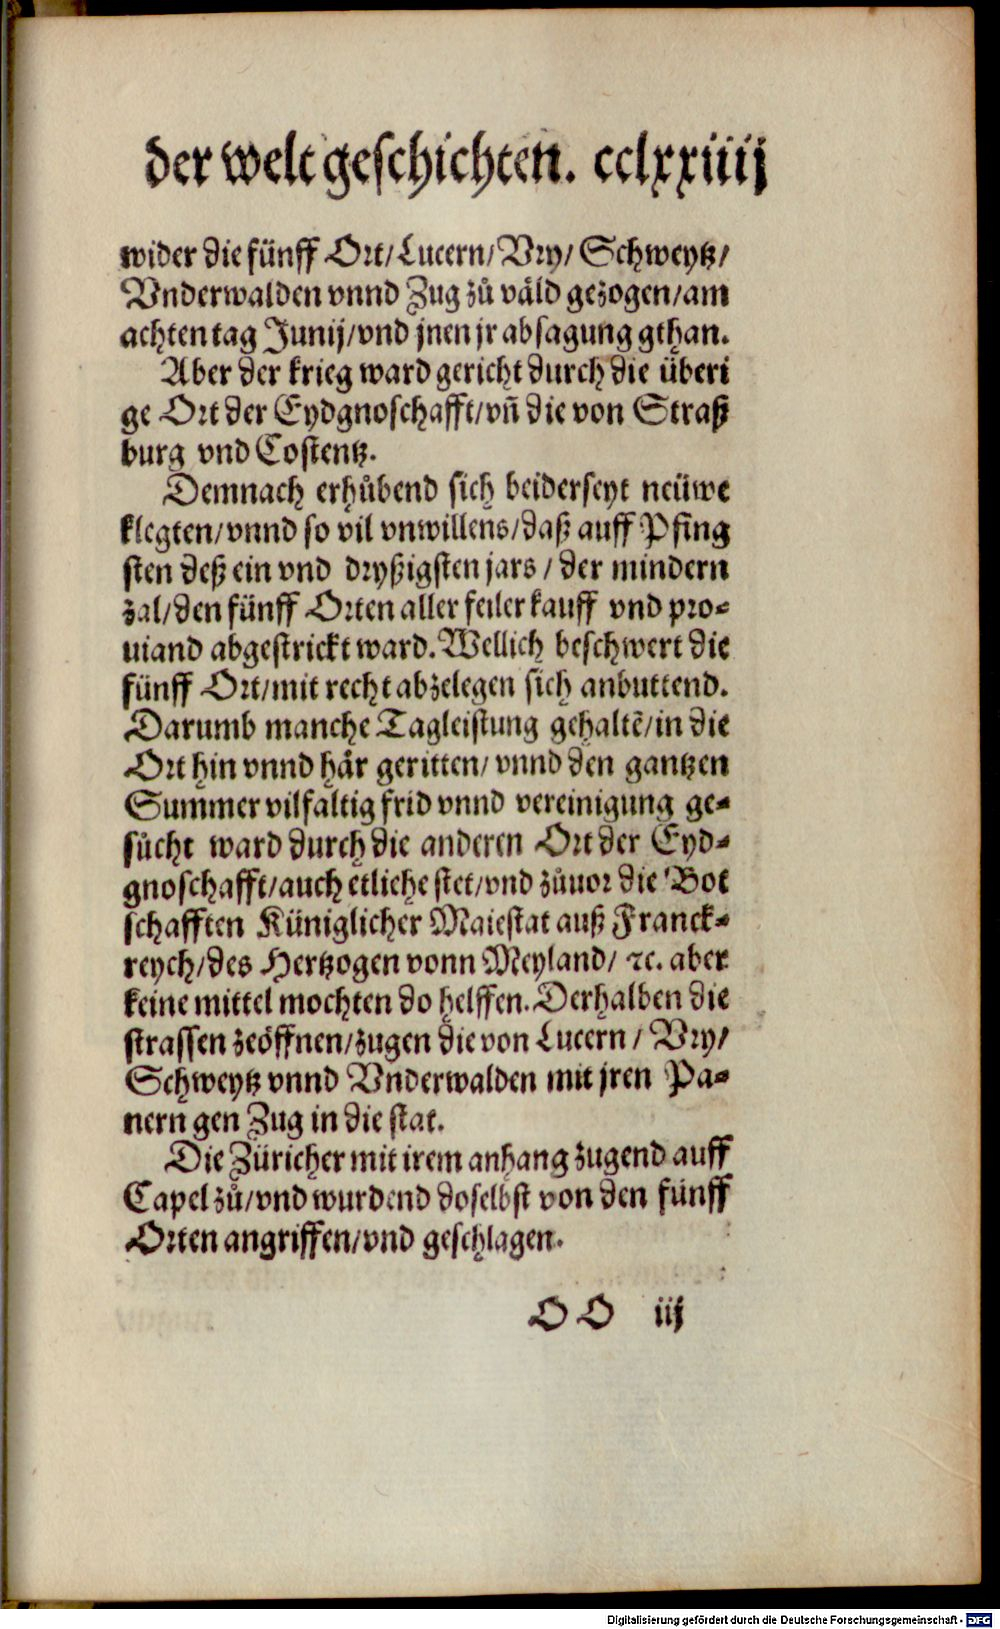 der welt geschichten. cclxxiiij
wider die fünff Ort/Lucern/Vry/Schweytz/
Vnderwalden vnnd Zug zů väld gezogen/am
achten tag Junij/vnd jnen jr absagung gthan.
Aber der krieg ward gericht durch die überi
ge Ort der Eydgnoschafft/vñ die von Straß
burg vnd Costentz.
Demnach erhůbend sich beiderseyt neüwe
klegten/vnnd so vil vnwillens/daß auff Pfing
sten deß ein vnd dryßigsten jars/der mindern
zal/den fünff Orten aller feiler kauff vnd pro-
uiand abgestrickt ward. Wellich beschwert die
fünff Ort/mit recht abzelegen sich anbuttend.
Darumb manche Tagleistung gehaltē/in die
Ort hin vnnd hår geritten/vnnd den gantzen
Summer vilfaltig frid vnnd vereinigung ge-
sůcht ward durch die anderen Ort der Eyd-
gnoschafft/auch etliche stet/vnd zůuor die Bot
schafften Küniglicher Maiestat auß Franck-
reych/des Hertzogen vonn Meyland/ ꝛc. aber
keine mittel mochten do helffen. Derhalben die
strassen zeöffnen/zugen die von Lucern/Vry/
Schweytz vnnd Vnderwalden mit jren Pa-
nern gen Zug in die stat.
Die Züricher mit irem anhang zugend auff
Capel zů/vnd wurdend doselbst von den fünff
Orten angriffen/vnd geschlagen.
OO iij
Digitalisierung gefördert durch die Deutsche Forschungsgemeinschaft - DFG